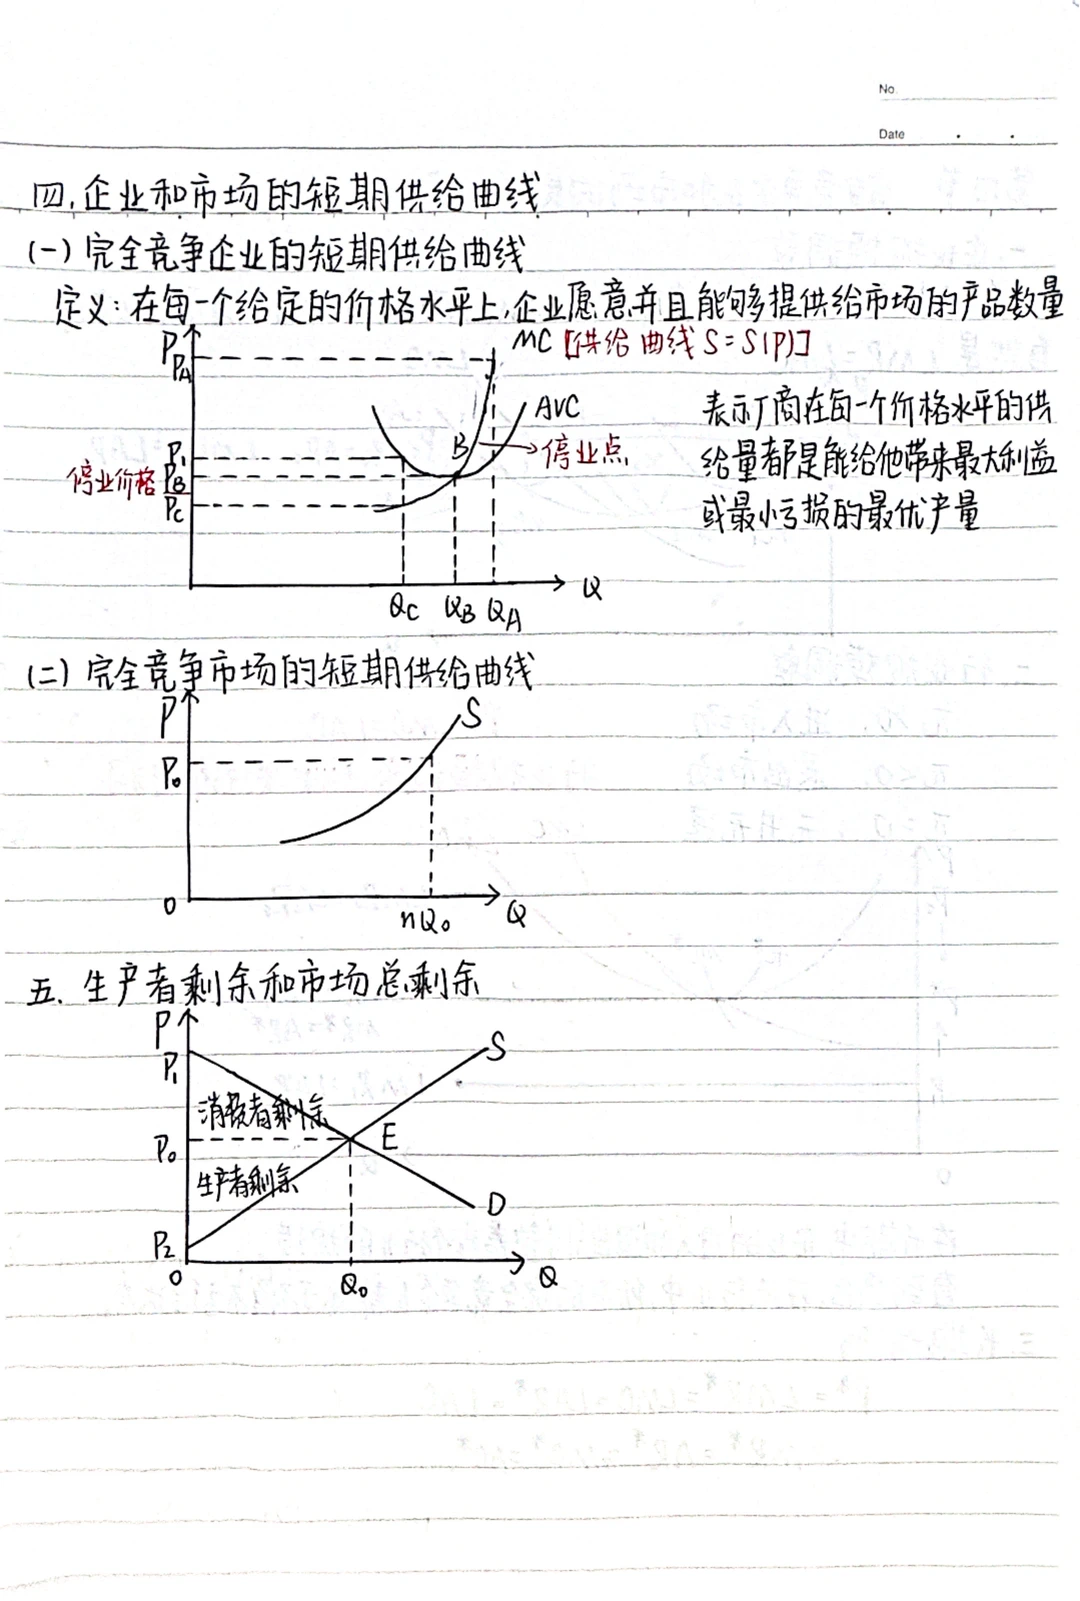 No.
Date
四.企业和市场的短期供给曲线
(一)完全竞争企业的短期供给曲线
定义:在每一个给定的价格水平上,企业愿意并且能够多提供给市场的产品数量
P
PA
MC [供给曲线S=S(P)]
AVC
表示厂商在每一个价格水平的供
P1
B
停业点
给量都是能给他带来最大利益
停业价格 PB
PC
或最小亏损的最优产量
Q
QC QB QA
(二)完全竞争市场的短期供给曲线
P
S
P0
0
nQ0
Q
五.生产者剩余和市场总剩余
P
S
P1
消费者剩余
P0
E
生产者剩余
D
P2
0
Q0
Q